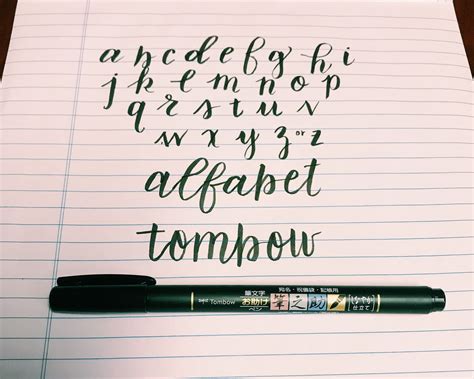 a b c d e f g h i
j k l m n o p
q r s t u v
w x y z or z
alfabet
tombow
Tombow 筆文字 お助け ペン 宛名・祝儀袋・記帳用 筆之助 しなやか 仕立て